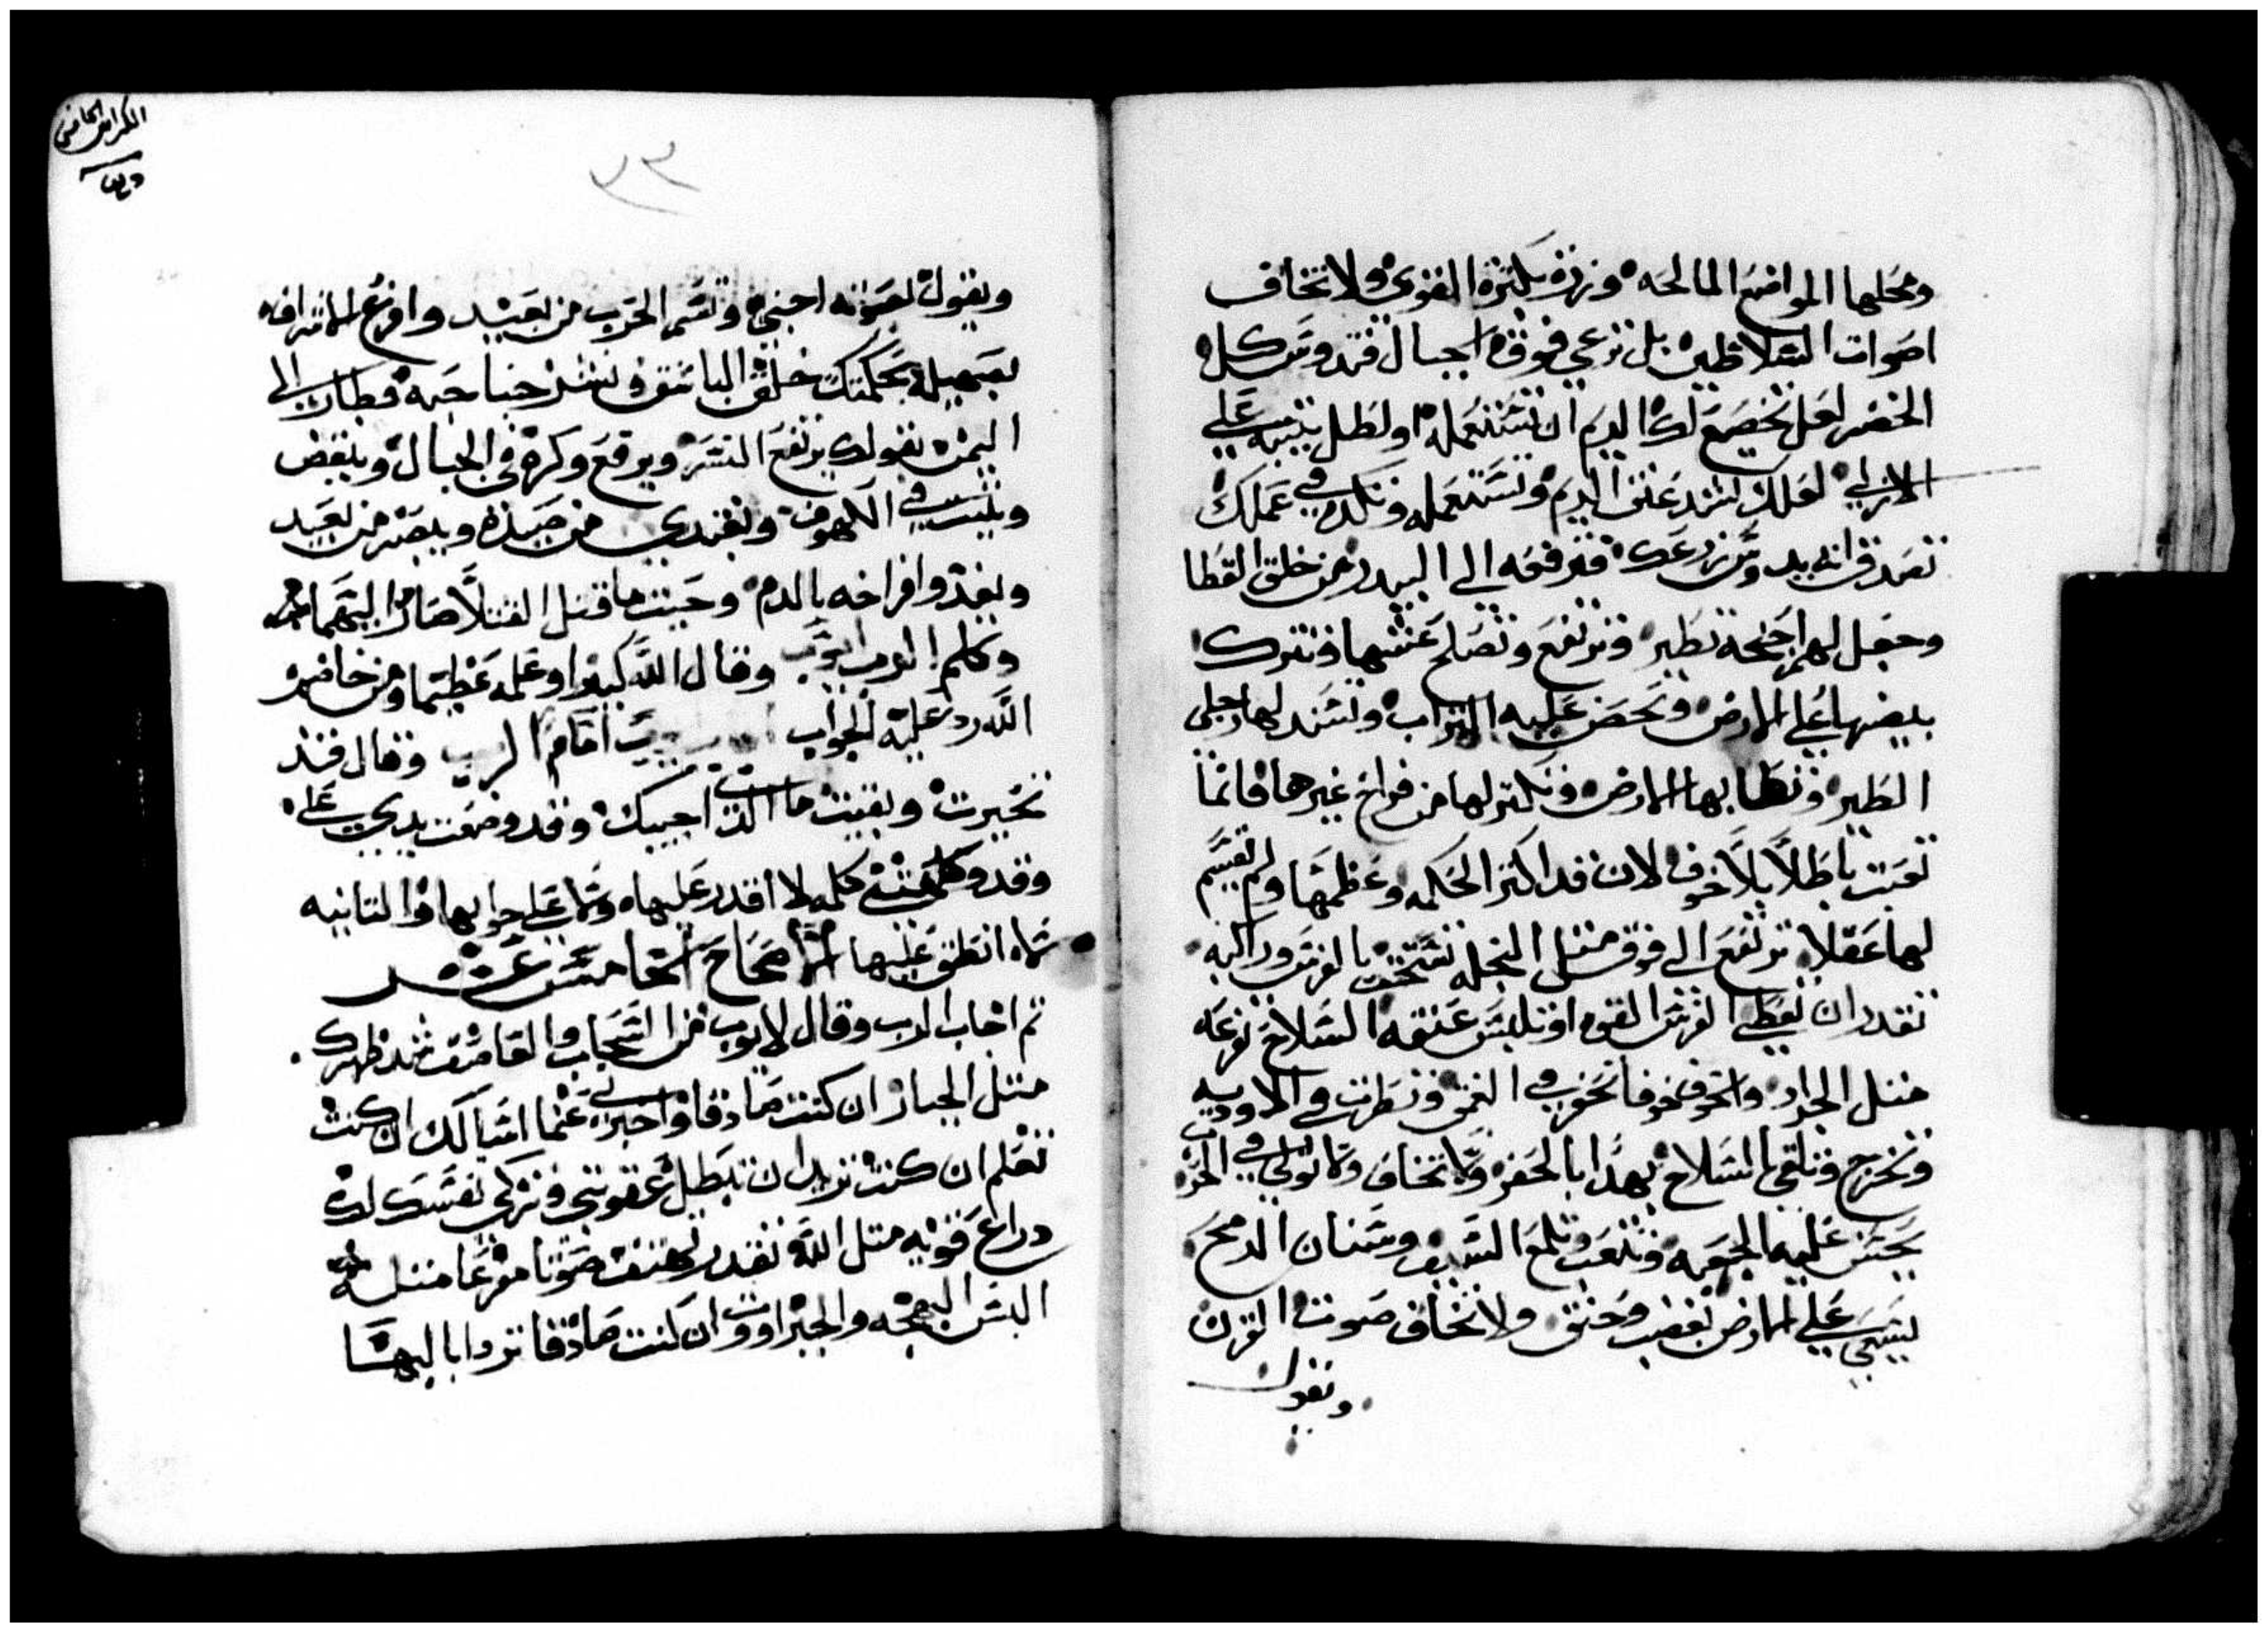 ومحلها المواضع المالحه وتهزو بكترة القوي ولا تخاف
اصوات السلاطين بل ترعي فوق الجبال فتهد وتبرك له
الخضر لعل يخضع لك الريم ان تستعمله او لطل يثيبه علي
الاري لعلك تشد عنق الريم وتستعمله وتكده في عملك
تصدق انه يدوس زرعك فترفعه الي البيدر من خلق القطا
وجعل لهم اجنحة تطير فترتفع وتصلح عشها وتترك
بيضها علي الارض وتحضن عليه التراب وتشتد لها رجلي
الطير وتطا بها الارض وتكتر لها من فراخ غيرها فانما
تعبت باطلاً بلا خوف لان قد اكتر الحكمه وعظمها ولم تقسم
لها عقلا ترتفع الي فوق متل النخله تستخف بالفرس وراكبه
تقدر ان تعطي الفرس القوه او تلبس عنقه السلاح تفزعه
متل الجراد واتخوف خوفا تحفر في العمق وتطرت في الاوديه
وتخرج وتلقي السلاح يهدا بالحفره ولا تخاف ولا تولي في الحرب
يحسن عليه الجعبه وتلعب وتلمع السيف وسنان الرمح
يسعي علي الارض بغضب وحنق ولا تخاف صوت القرن
ويقول
الكراس الخامس
٣٣
ويقول لصوته احبني وتشم الحرب من بعيد وافزع الاشرافه
بصهيله بحكمتك خلق الباشق ونشر جناحيه وطار الي
اليمن بقولك يرتفع النسر ويرفع وكره في الجبال ويلقض
ويبيت في الكهوف ويغتدي من صيده ويبصر من بعيد
ويغدوا افراخه بالدم وحيت ما قتل القتلا صار اليهم
وكلم الرب ايوب وقال الله كبيرا وعلمه عظيما ومن خاضم
الله رد عليه الجواب اجاب ايوب امام الرب وقال قد
تحيرت وبقيت ما الذي اجيبك وقد وضعت يدي علي
وقد وكلمتني كلمه لا اقدر عليها ولا علي جوابها والتانيه
لا انطق عليها الاصحاح الخامس عشر
تم اجاب الرب وقال لايوب من السحاب والعاصف شد ظهرك
متل الجبار ان كنت صادقا واخبرني عنما اسالك ان كنت
تعلم ان كنت تريد ان تبطل عقوبتي وتزكي نفسك لك
دراع قويه متل الله تقدر تهتف صوتا مرعبا متله
البس البهجه والجبراوت ان كنت صادقا تردا بالبهسا